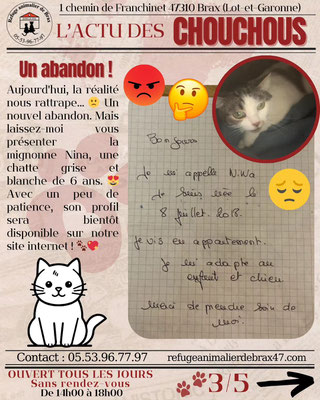 Refuge animalier de Brax
05-53-96-77-97
1 chemin de Franchinet 47310 Brax (Lot-et-Garonne)
L'ACTU DES CHOUCHOUS
Un abandon !
Aujourd'hui, la réalité
nous rattrape... 🙁 Un
nouvel abandon. Mais
laissez-moi vous
présenter la
mignonne Nina, une
chatte grise et
blanche de 6 ans. 😍
Avec un peu de
patience, son profil
sera bientôt
disponible sur notre
site internet ! 🐾💖
Bonjours
Je m appelle NiNa
Je suis née le
8 juillet. 2018.
je vis en appartement.
Je m adapte au
enfant et chien
Merci de prendre soin de
moi.
Contact : 05.53.96.77.97
refugeanimalierdebrax47.com
OUVERT TOUS LES JOURS
Sans rendez-vous
De 14h00 à 18h00
3/5